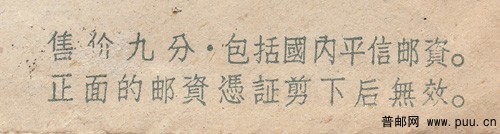 售价九分·包括國內平信邮資。
正面的邮資憑証剪下后無效。
普邮网 www.puu.cn